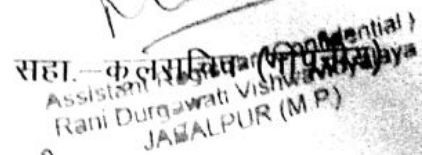 सहा.–कुलसचिव (गोपनीय)
Assistant Registrar (Confidential)
Rani Durgawati Vishwavidyalaya
JABALPUR (M.P.)